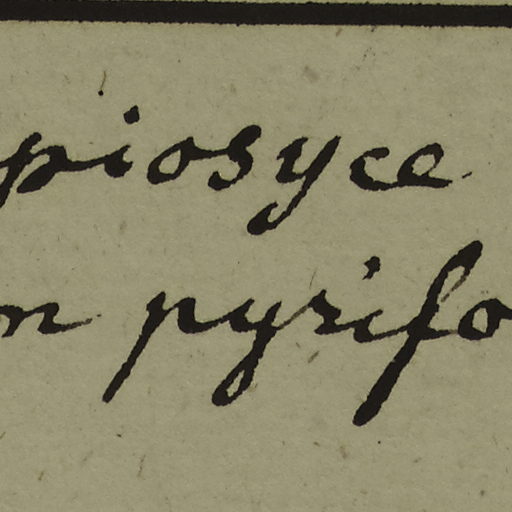 piosyce
n pyrifo